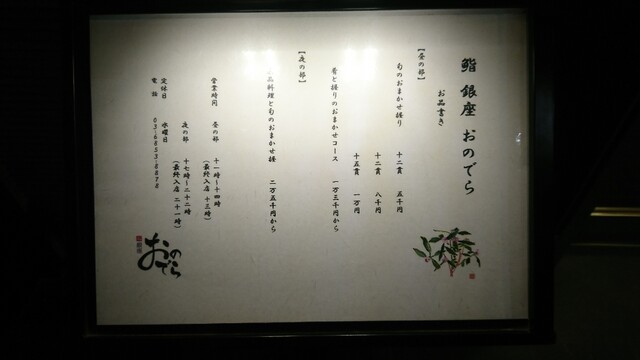 鮨 銀座 おのでら
お品書き
【昼の部】
旬のおまかせ握り 十二貫 五千円
十二貫 八千円
十五貫 一万円
肴と握りのおまかせコース 一万三千円から
【夜の部】
品料理と旬のおまかせ握 二万五千円から
営業時間 昼の部 十一時〜十四時
(最終入店 十三時)
夜の部 十七時〜二十二時
(最終入店 二十一時)
定休日 水曜日
電話 03-6853-8878
おのでら